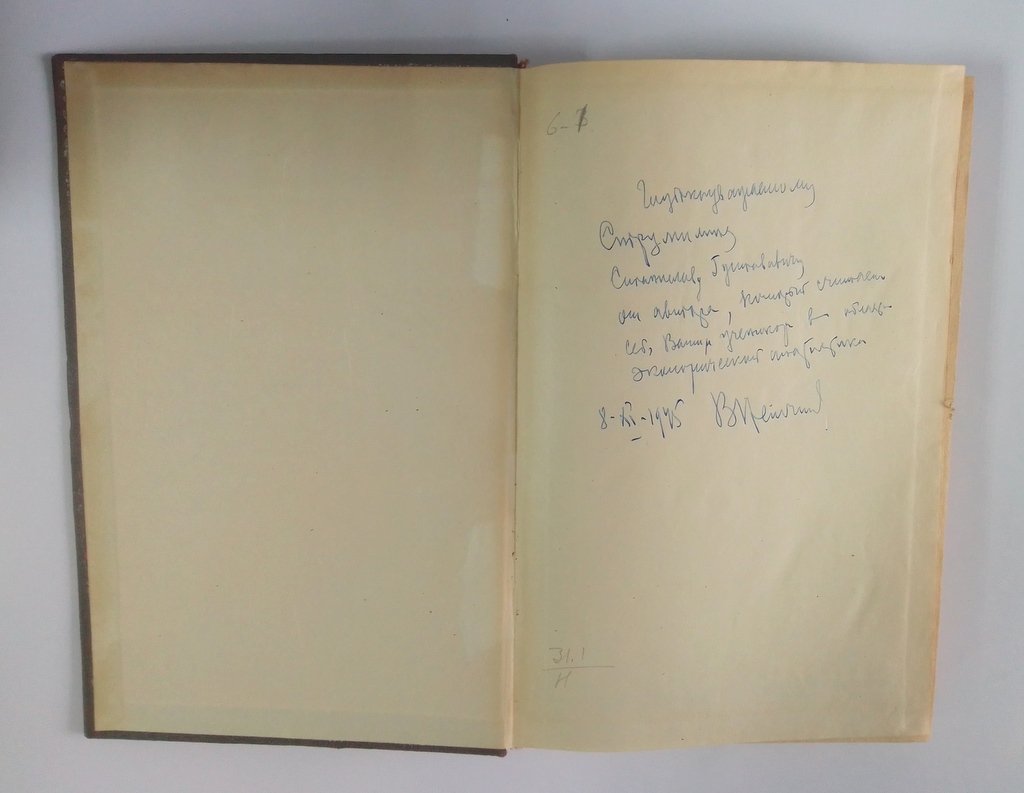 6-7
Глубокоуважаемому
Струмилину
Станиславу Густавовичу
от автора, который считает
себя Вашим учеником в области
экономической статистики
8-XII-1945 ВНемчинов
31.1
Н